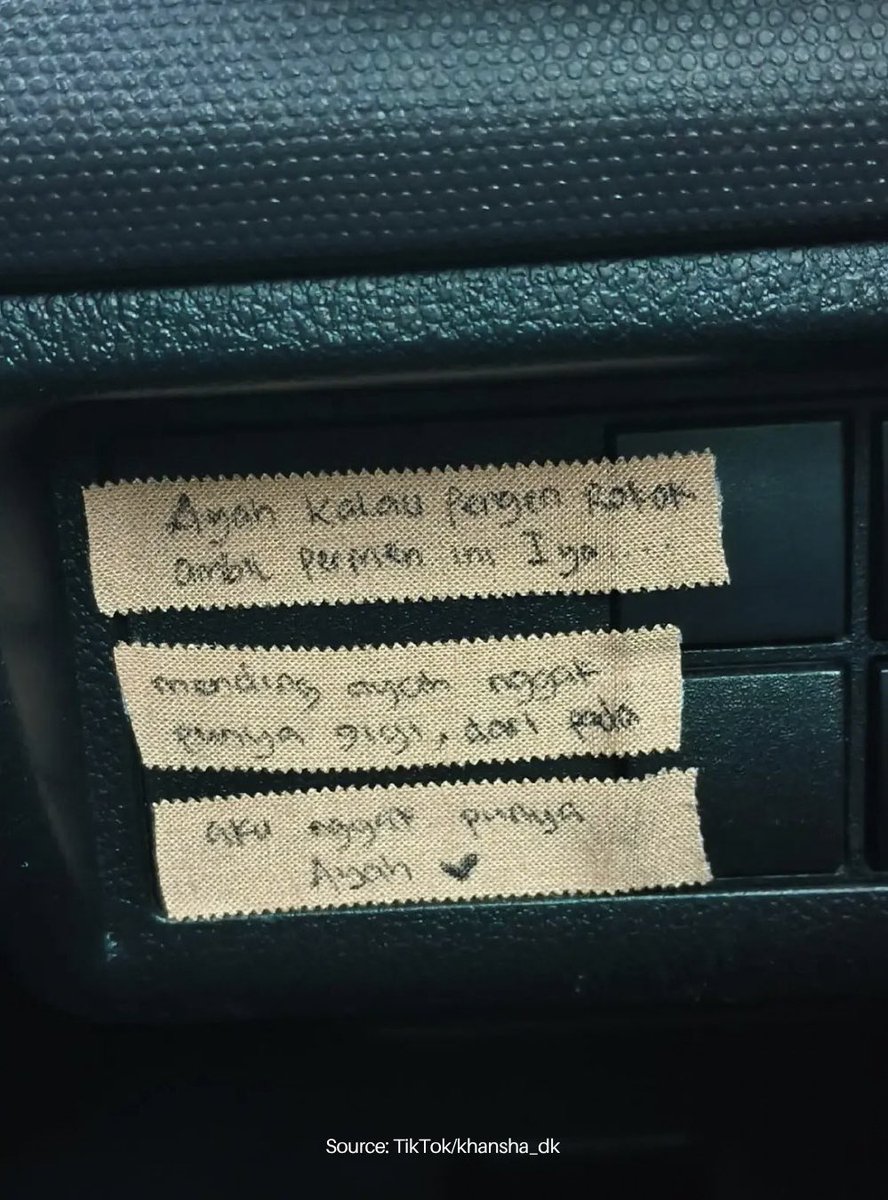 Ayah kalau pengen Rokok
ambil permen ini Iya....
mending ayah nggak
punya gigi, dari pada
aku nggak punya
Ayah ♥
Source: TikTok/khansha_dk